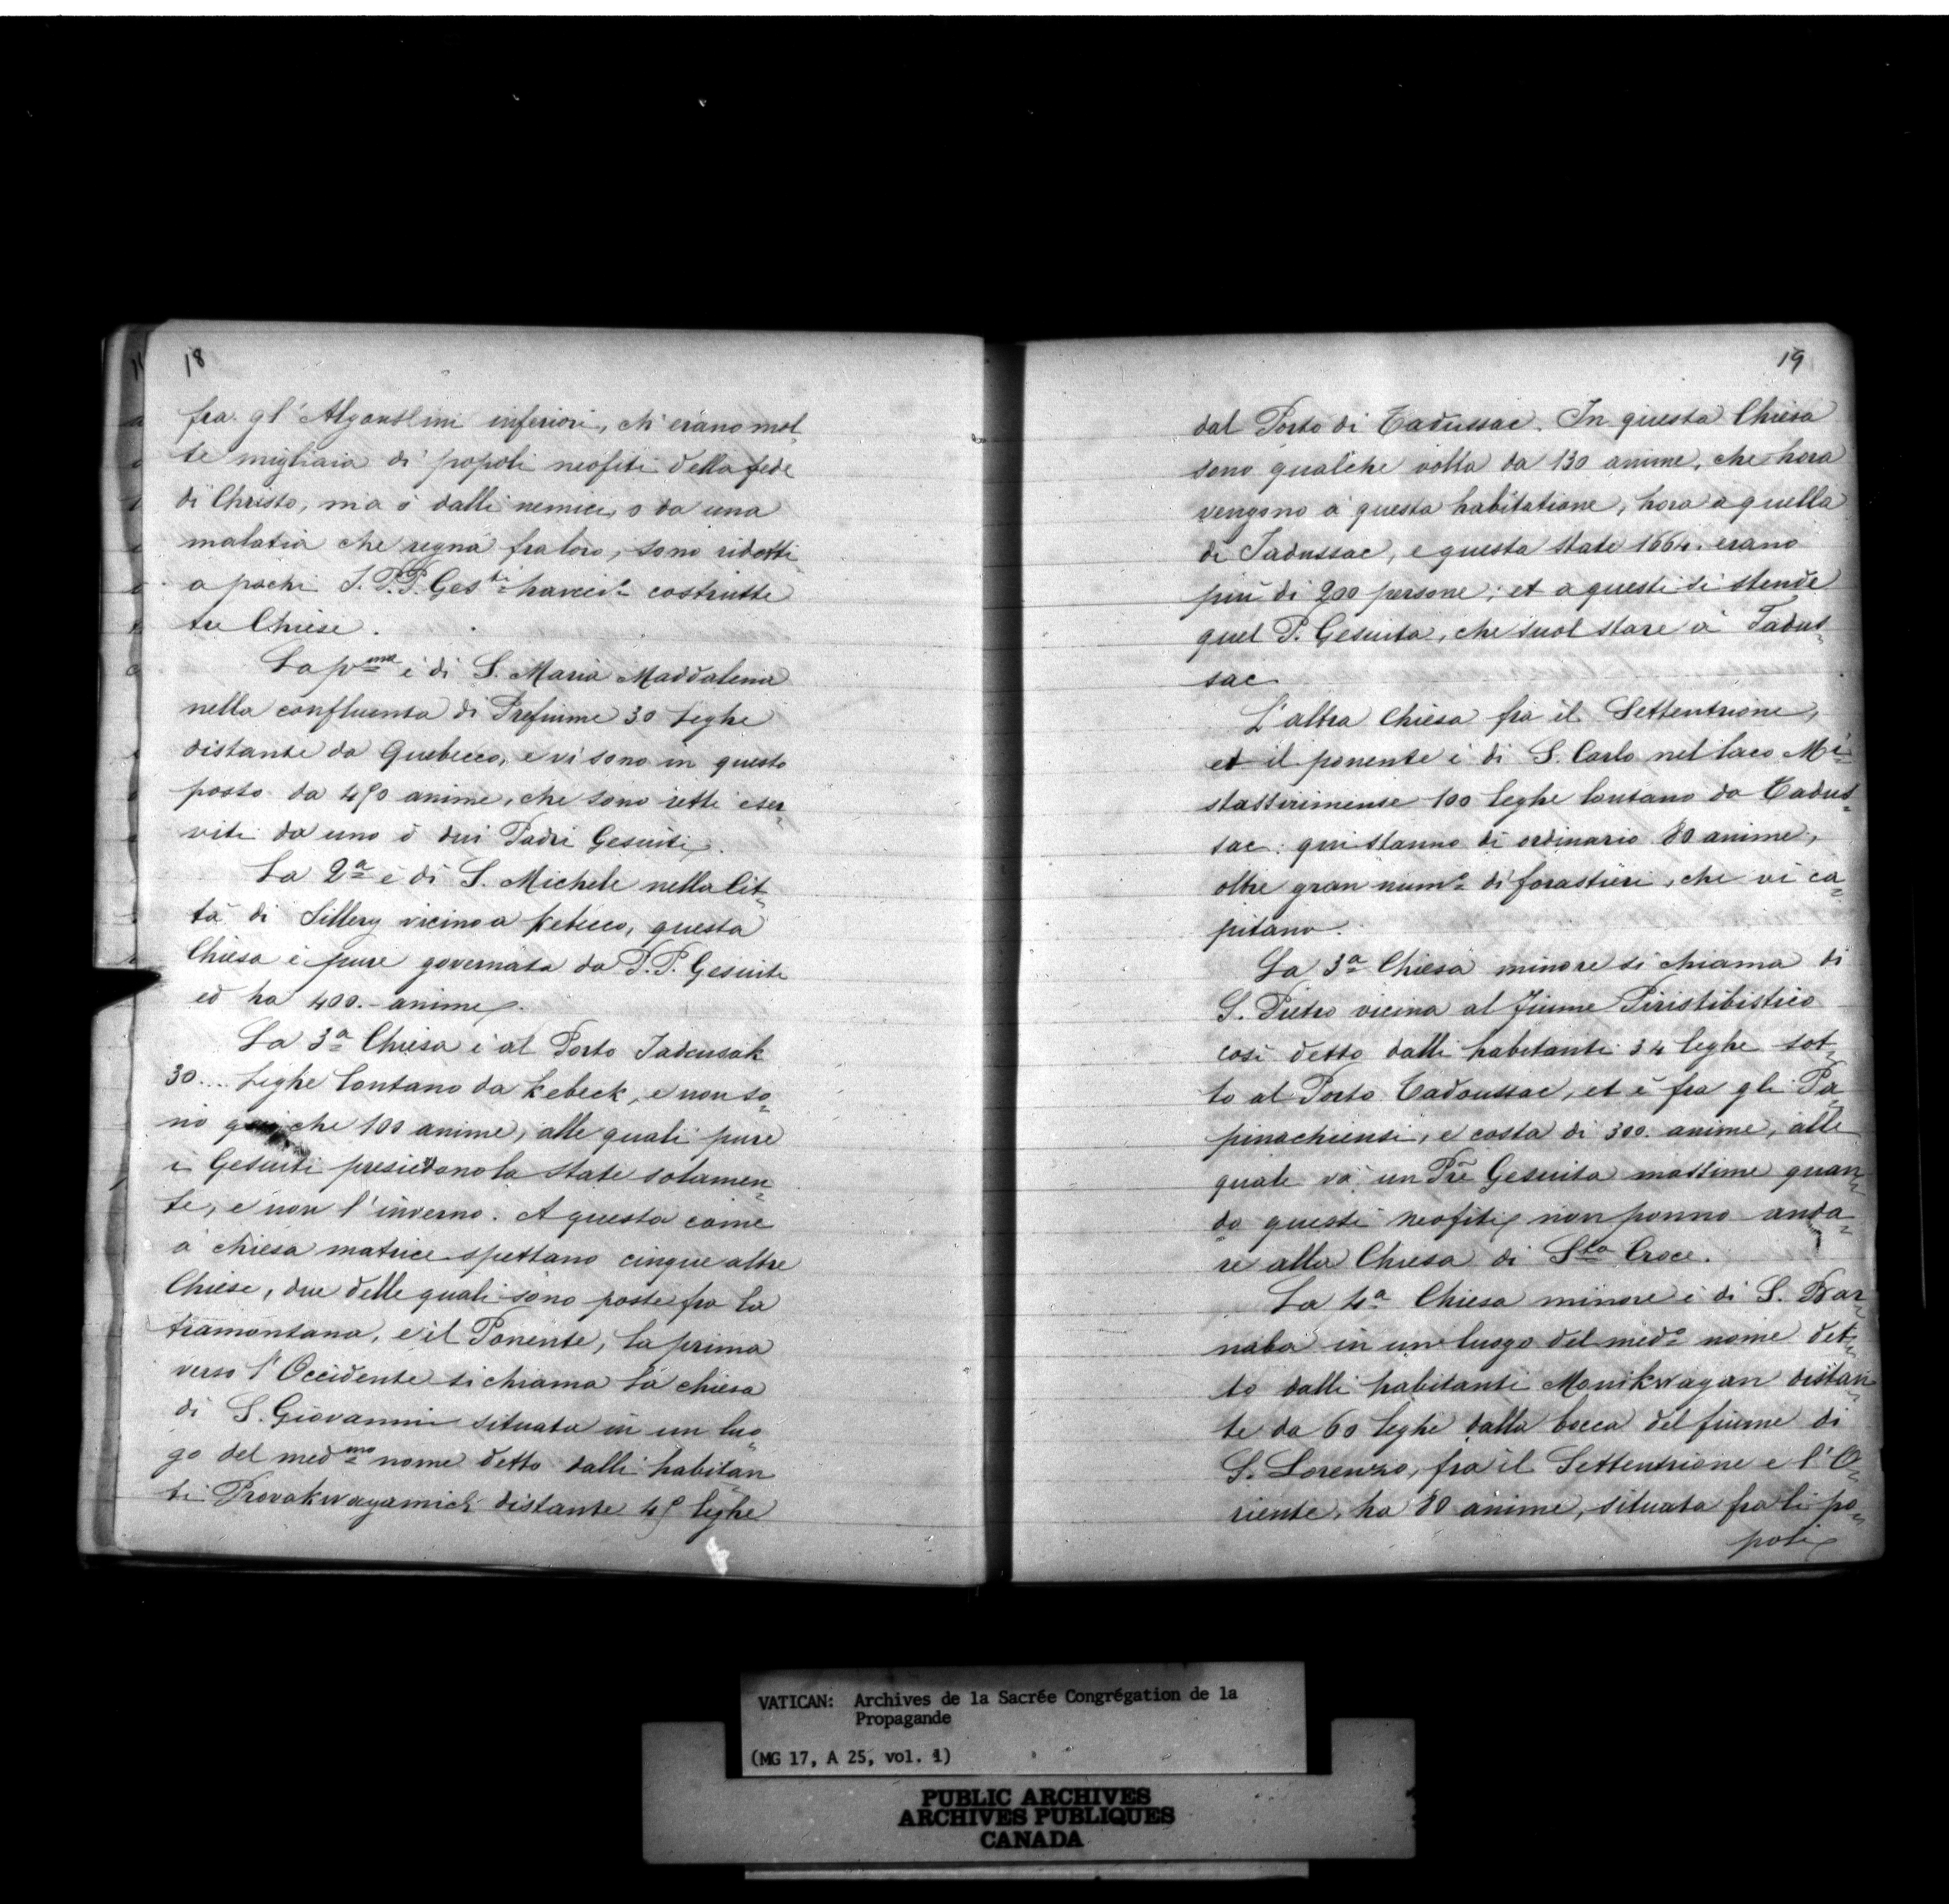 18
fra gl' Algonslini inferiori, ch' erano mol=
te migliaia di popoli neofiti della fede
di Christo, ma ò dalli nemici, o da una
malatia che regna fra loro, sono ridotti
a pochi I. P.P. Ges.ti costrutte
tre Chiese.
La p.ma è di S. Maria Maddalena
nella confluenta di Trefiume 30 Leghe
distante da Quebecco, e vi sono in questo
posto da 450 anime, che sono retti e ser=
viti da uno ò dui Padri Gesuiti.
La 2.a è di S. Michele nella Cit=
tà di Sillery vicino a Kebecco, questa
Chiesa è pure governata da P.P. Gesuiti
ed ha 400.- anime.
La 3.a Chiesa è al Porto Tadcusak
30... Leghe lontano da Kebeck, e non so=
no che 100 anime, alle quali pure
i Gesuiti presiedono la state solamen=
te, e non l'inverno. A questa come
a chiesa matrice spettano cinque altre
Chiese, due delle quali sono poste fra la
tramontana, e il Ponente, la prima
verso l'Occidente si chiama la chiesa
di S. Giovanni situata in un luo=
go del med.mo nome detto dalli habitan=
ti distante 45 leghe
19
dal Porto di Tadussac. In questa Chiesa
sono qualche volta da 130 anime, che hora
vengono a questa habitatione, hora a quella
di Tadussac, e questa state 1664. erano
più di 200 persone; et a questi si stende
quel P. Gesuita, che suol stare à Tadus=
sac
L'altra Chiesa fra il Settentrione,
et il ponente è di S. Carlo nel laco Mi=
stassirimense 100 leghe lontano da Tadus=
sac: qui stanno di ordinario 80 anime,
oltre gran num.o di forastieri, che vi ca=
pitano.
La 3.a Chiesa minore si chiama di
S. Pietro vicina al fiume Piristibistico
così detto dalli habitanti 34 leghe sot=
to al Porto Tadoussac, et è fra gli Pa=
pinachiensi, e costa di 300. anime, alle
quale và un Pre Gesuita massime quan=
do questi neofiti non ponno anda=
re alla Chiesa di S.ta Croce.
La 4.a Chiesa minore è di S. Bar=
naba in un luogo del med.o nome det=
to dalli habitanti Manikwagan distan=
te da 60 leghe dalla bocca del fiume di
S. Lorenzo, fra il Settentrione e l'O=
riente, ha 80 anime, situata fra li po=
poli
VATICAN: Archives de la Sacrée Congrégation de la
Propagande
(MG 17, A 25, vol. 1)
PUBLIC ARCHIVES
ARCHIVES PUBLIQUES
CANADA